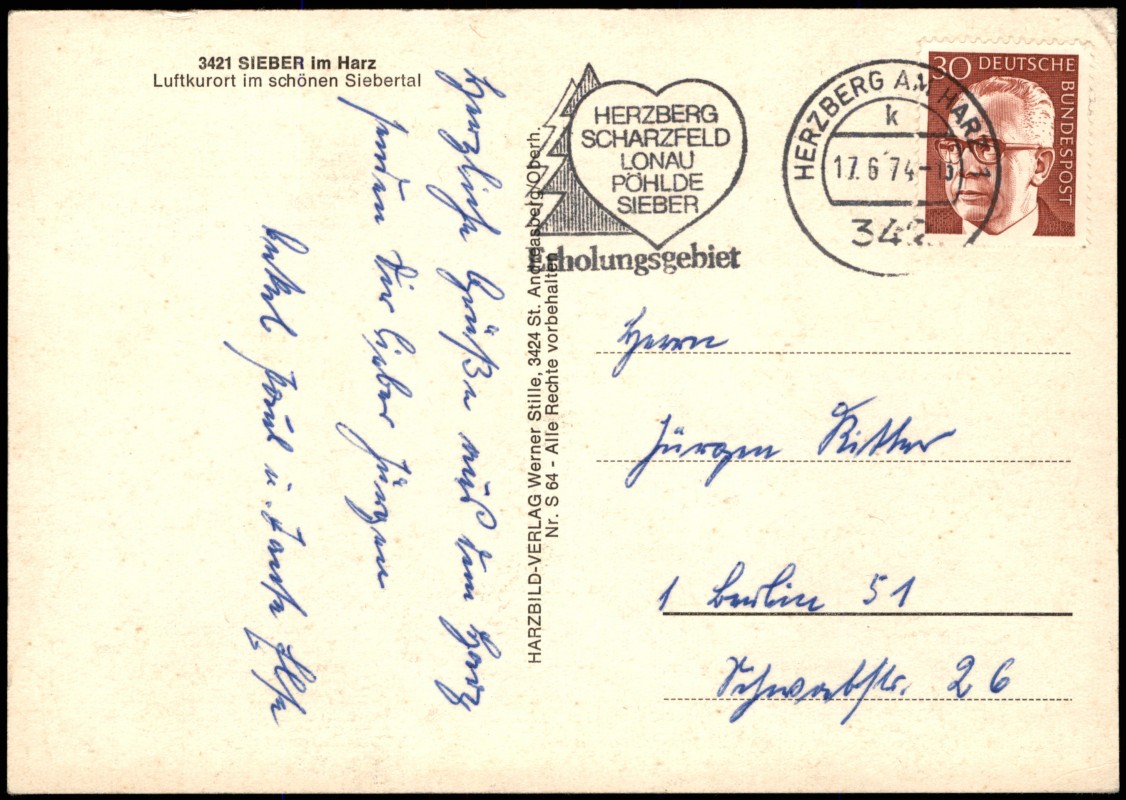 3421 SIEBER im Harz
Luftkurort im schönen Siebertal
Herzliche Grüße aus dem Harz
senden Dir lieber Jürgen
Onkel Paul u. Tante Ilse
HARZBILD-VERLAG Werner Stille, 3424 St. Andreasberg/Oberh.
Nr. S 64 - Alle Rechte vorbehalten
HERZBERG
SCHARZFELD
LONAU
PÖHLDE
SIEBER
Erholungsgebiet
HERZBERG AM HARZ 1
k
17.6.74-
342
30 DEUTSCHE
BUNDESPOST
Herrn
Jürgen Ritter
1 Berlin 51
Schwabstr. 26